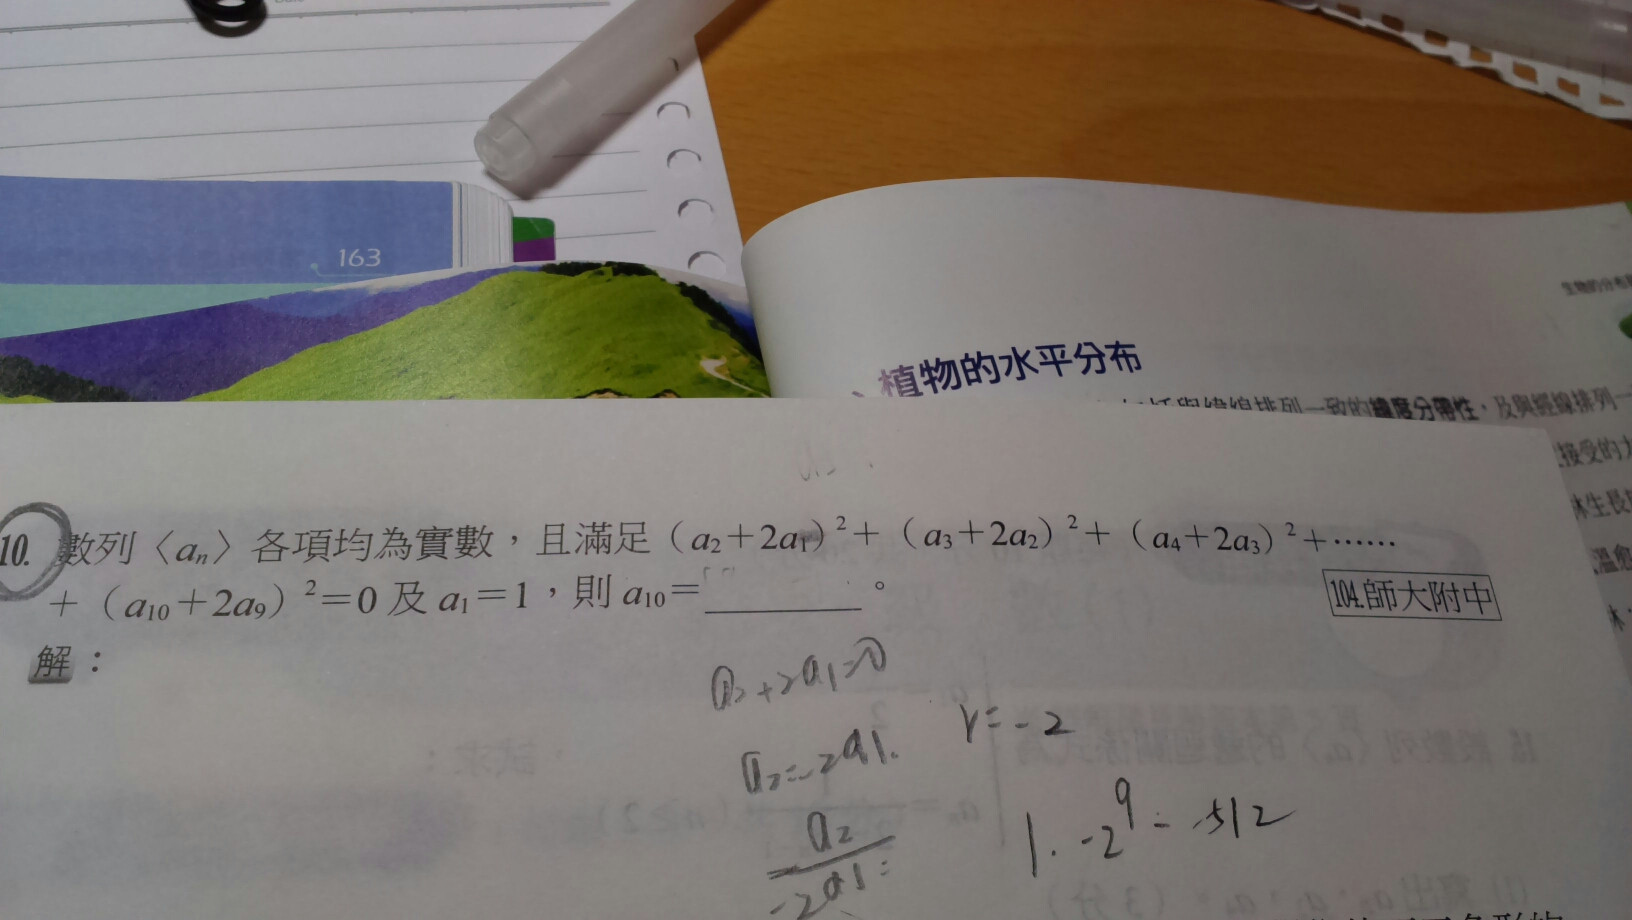 163
植物的水平分布
一致的緯度分帶性，及與經線排列一
接受的
林生長
10. 數列〈aₙ〉各項均為實數，且滿足（a₂＋2a₁）²＋（a₃＋2a₂）²＋（a₄＋2a₃）²＋⋯⋯
＋（a₁₀＋2a₉）²＝0 及 a₁＝1，則 a₁₀＝________。
104.師大附中
解：
a₂+2a₁=0
a₂=-2a₁.
r=-2
a₂/-2a₁=
1.-2⁹=-512